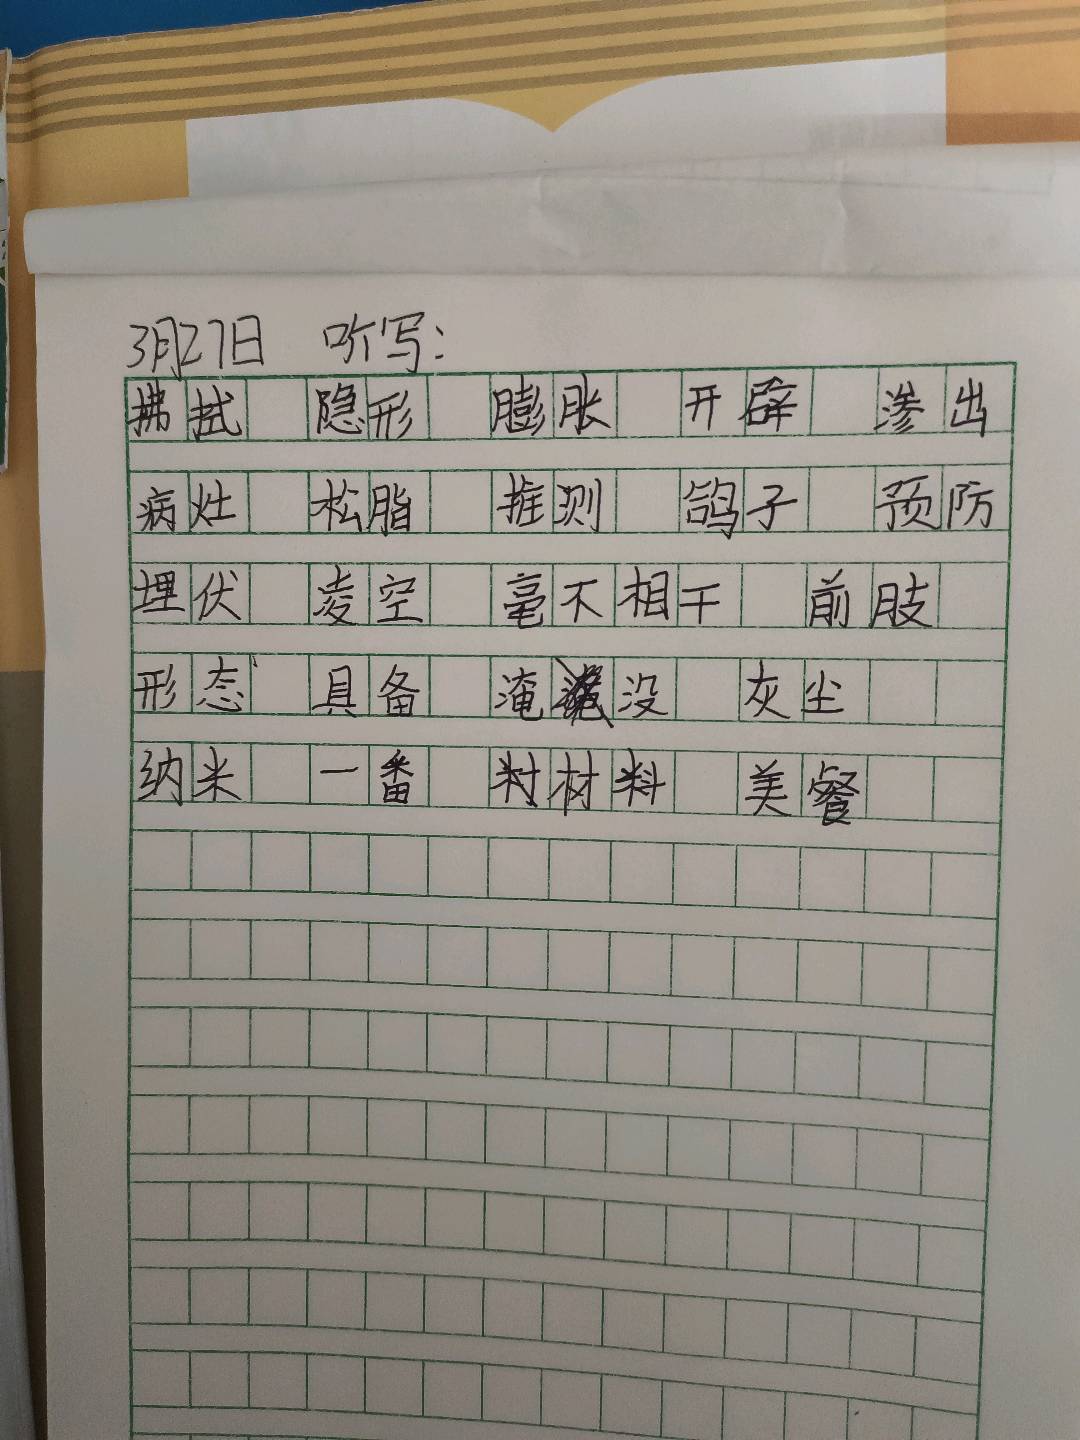 3月27日 听写:
拂拭 隐形 膨胀 开辟 渗出
病灶 松脂 推测 鸽子 预防
埋伏 凌空 毫不相干 前肢
形态 具备 淹没 灰尘
纳米 一番 材料 美餐